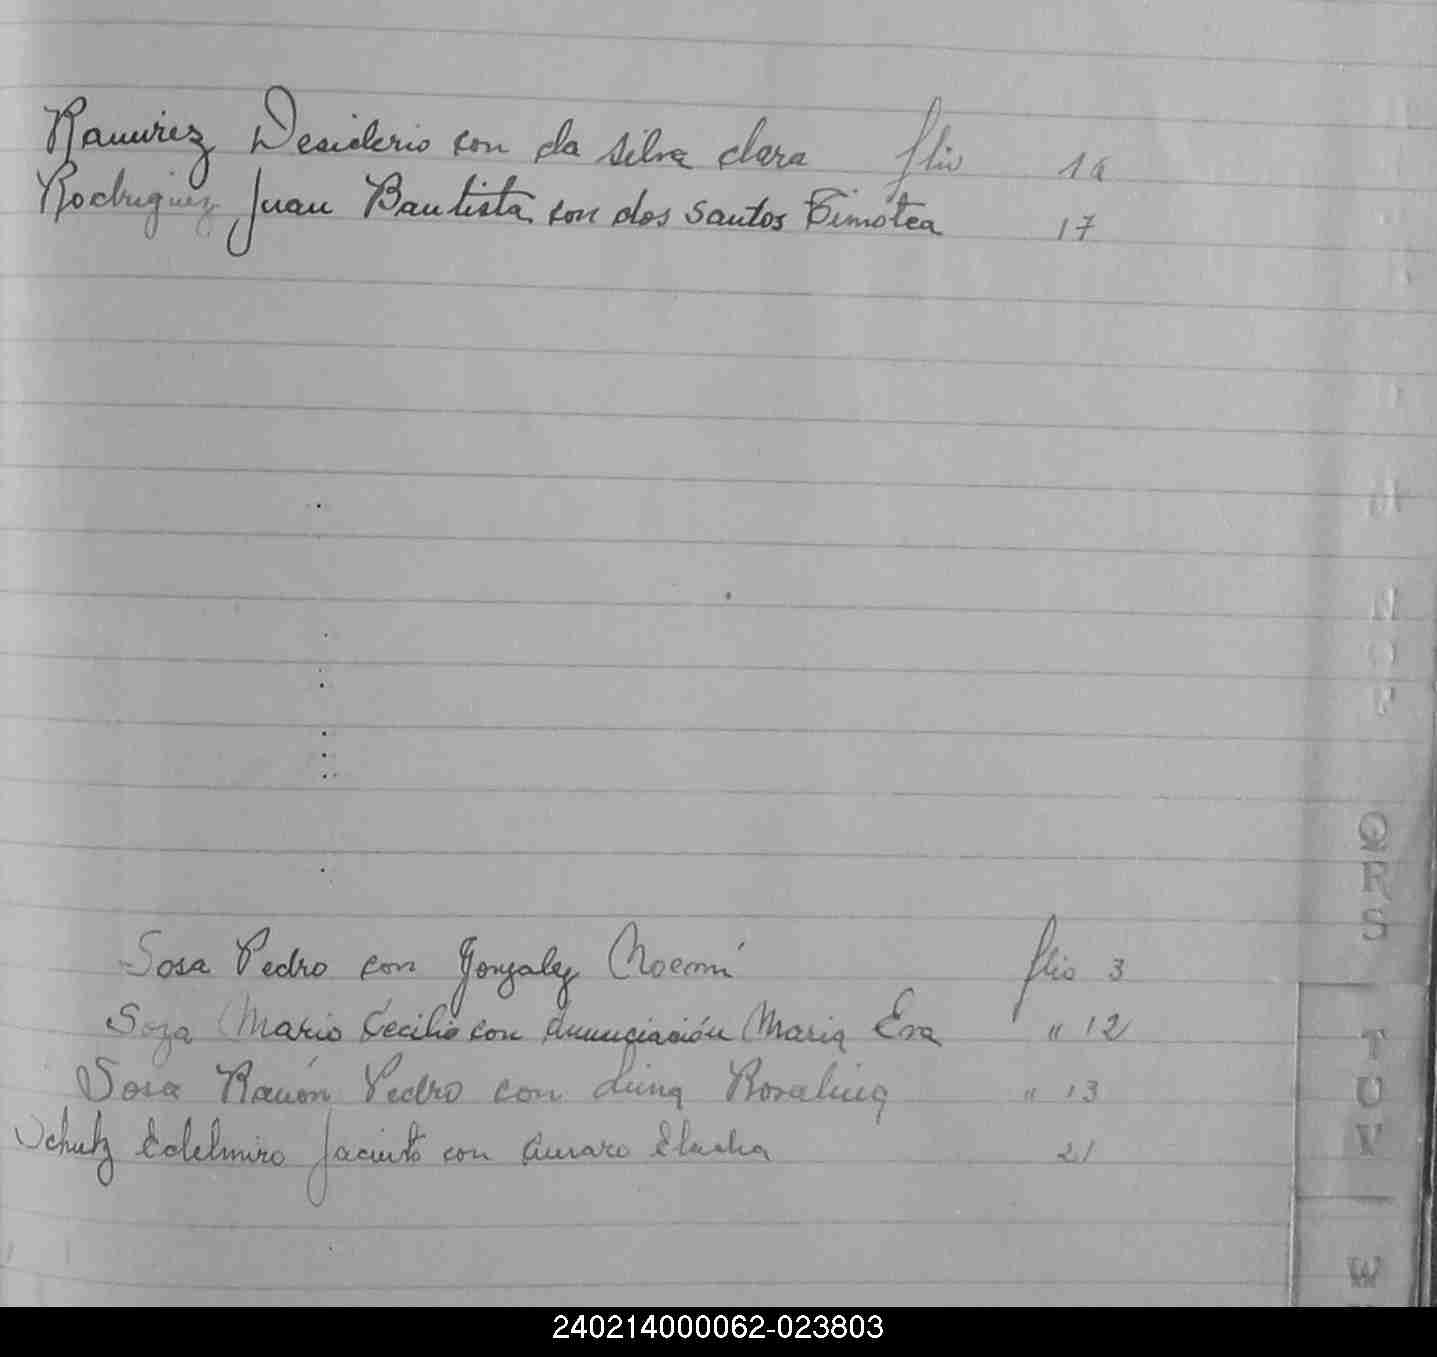 Ramirez Desiderio con da silva clara flio 16
Rodriguez Juan Bautista con dos santos Timotea 17
Sosa Pedro con Gonzalez Noemí flio 3
Soza Mario Cecilio con Anunciación Maria Eva " 12
Sosa Ramón Pedro con Luna Rosalina " 13
Schutz Edelmiro Jacinto con 21
QRS
TUV
W
240214000062-023803